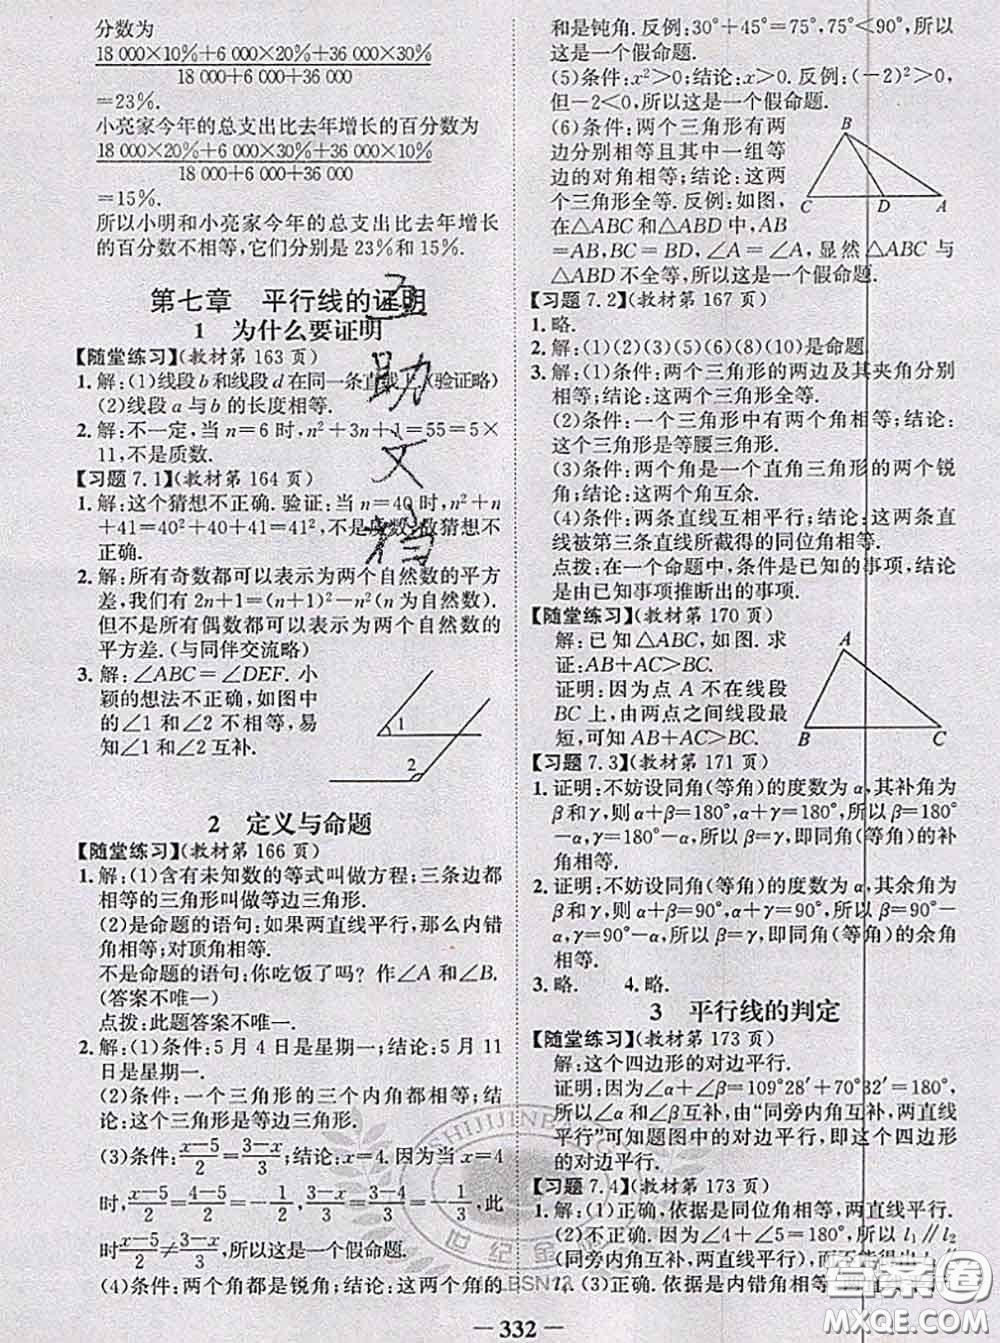 分数为
18 000×10%+6 000×20%+36 000×30%
18 000+6 000+36 000
=23%.
小亮家今年的总支出比去年增长的百分数为
18 000×20%+6 000×30%+36 000×10%
18 000+6 000+36 000
=15%.
所以小明和小亮家今年的总支出比去年增长
的百分数不相等,它们分别是 23%和 15%.
第七章 平行线的证明
1 为什么要证明
【随堂练习】(教材第 163 页)
1. 解:(1)线段 b 和线段 d 在同一条直线上.(验证略)
(2)线段 a 与 b 的长度相等.
2. 解:不一定,当 n=6 时,n²+3n+1=55=5×
11,不是质数.
【习题 7.1】(教材第 164 页)
1. 解:这个猜想不正确. 验证:当 n=40 时,n²+n
+41=40²+40+41=41²,不是质数,故猜想不
正确.
2. 解:所有奇数都可以表示为两个自然数的平方
差,我们有 2n+1=(n+1)²-n²(n 为自然数).
但不是所有偶数都可以表示为两个自然数的
平方差.(与同伴交流略)
3. 解:∠ABC=∠DEF. 小
颖的想法不正确,如图中
的∠1 和∠2 不相等,易
知∠1 和∠2 互补.
1
2
2 定义与命题
【随堂练习】(教材第 166 页)
1. 解:(1)含有未知数的等式叫做方程;三条边都
相等的三角形叫做等边三角形.
(2)是命题的语句:如果两直线平行,那么内错
角相等;对顶角相等.
不是命题的语句:你吃饭了吗? 作∠A 和∠B.
(答案不唯一)
点拨:此题答案不唯一.
2. 解:(1)条件:5 月 4 日是星期一;结论:5 月 11
日是星期一.
(2)条件:一个三角形的三个内角都相等;结
论:这个三角形是等边三角形.
(3)条件:(x-5)/2=(3-x)/3;结论:x=4. 因为当 x=4
时,(x-5)/2=(4-5)/2=-1/2,(3-x)/3=(3-4)/3=-1/3,此
时(x-5)/2≠(3-x)/3,所以这是一个假命题.
(4)条件:两个角都是锐角;结论:这两个角的
和是钝角. 反例:30°+45°=75°,75°<90°,所以
这是一个假命题.
(5)条件:x²>0;结论:x>0. 反例:(-2)²>0,
但-2<0,所以这是一个假命题.
(6)条件:两个三角形有两
边分别相等且其中一组等
边的对角相等;结论:这两
个三角形全等. 反例:如图,
在△ABC 和△ABD 中,AB
=AB,BC=BD,∠A=∠A,显然△ABC 与
△ABD 不全等,所以这是一个假命题.
B
C D A
【习题 7.2】(教材第 167 页)
1. 略.
2. 解:(1)(2)(3)(5)(6)(8)(10)是命题.
3. 解:(1)条件:两个三角形的两边及其夹角分别
相等;结论:这两个三角形全等.
(2)条件:一个三角形中有两个角相等;结论:
这个三角形是等腰三角形.
(3)条件:两个角是一个直角三角形的两个锐
角;结论:这两个角互余.
(4)条件:两条直线互相平行;结论:这两条直
线被第三条直线所截得的同位角相等.
点拨:在一个命题中,条件是已知的事项,结论
是由已知事项推断出的事项.
【随堂练习】(教材第 170 页)
解:已知△ABC,如图. 求
证:AB+AC>BC.
证明:因为点 A 不在线段
BC 上,由两点之间线段最
短,可知 AB+AC>BC.
A
B C
【习题 7.3】(教材第 171 页)
1. 证明:不妨设同角(等角)的度数为 α,其补角为
β和γ,则 α+β=180°,α+γ=180°,所以β=180°
-α,γ=180°-α,所以β=γ,即同角(等角)的补
角相等.
2. 证明:不妨设同角(等角)的度数为 α,其余角为
β和γ,则 α+β=90°,α+γ=90°,所以β=90°
-α,γ=90°-α,所以β=γ,即同角(等角)的余角
相等.
3. 略. 4. 略.
3 平行线的判定
【随堂练习】(教材第 173 页)
解:这个四边形的对边平行.
证明:因为∠α+∠β=109°28′+70°32′=180°,
所以∠α和∠β互补,由“同旁内角互补,两直线
平行”可知题图中的对边平行,即这个四边形
的对边平行.
【习题 7.4】(教材第 173 页)
1. 解:(1)正确,依据是同位角相等,两直线平行.
(2)不正确. 因为∠4+∠5=180°,所以 l₁∥l₂
(同旁内角互补,两直线平行),而不能得出 l₃∥
l₄.(3)正确.依据是内错角相等,两直线平行.
332
互助文档
SHIJIJINBANG
世纪金
LBSN12
答案圈
MXQE.COM